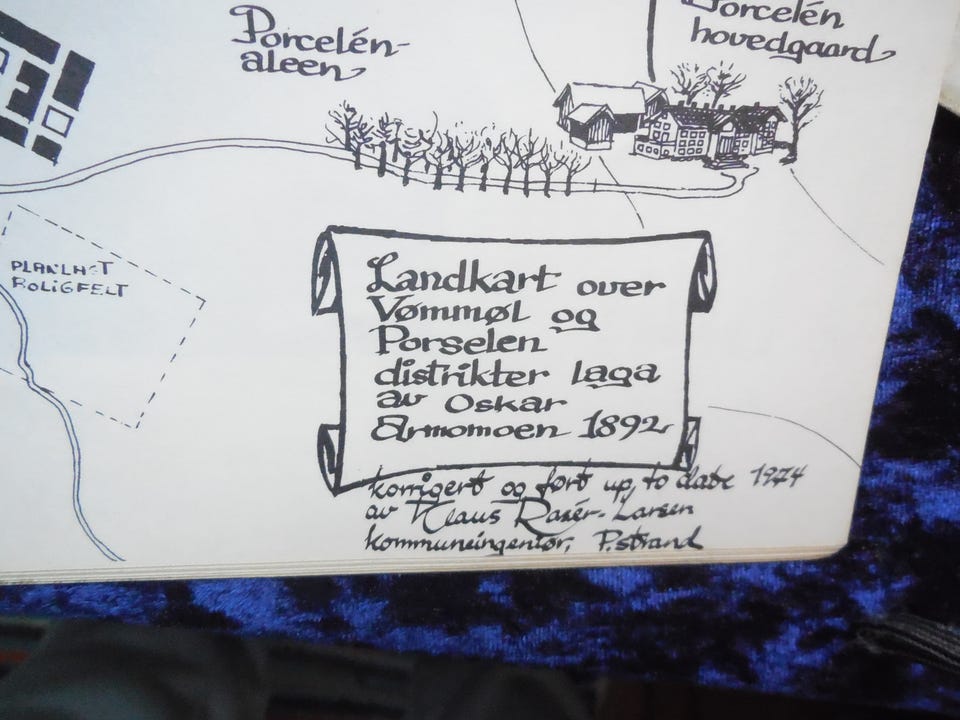 Porcelén-
aleen
Porcelén
hovedgaard
PLANLAGT
BOLIGFELT
Landkart over
Vømmøl og
Porselen
distrikter laga
av Oskar
Armomoen 1892
korrigert og ført up to date 1974
av Klaus Raxér-Larsen
kommuneingeniør, P.strand